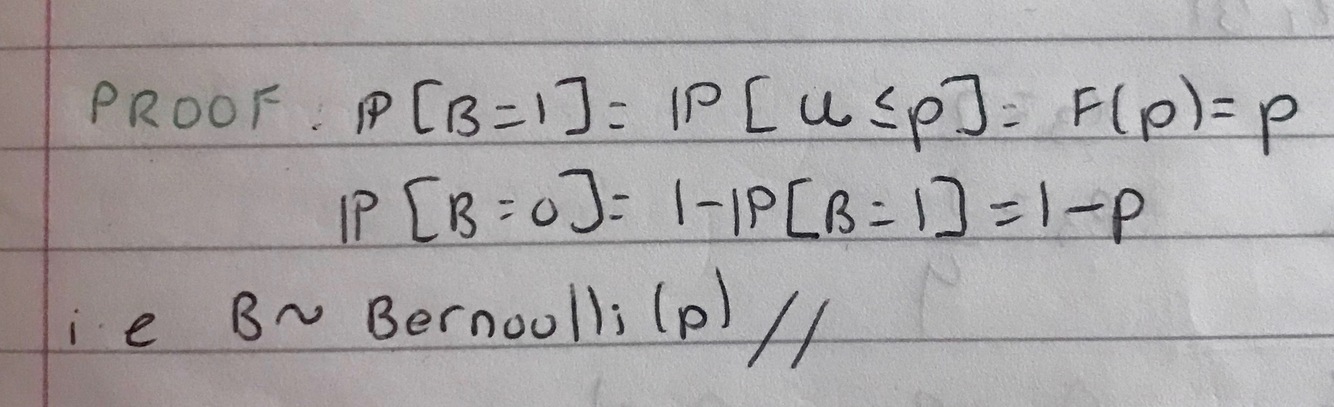 PROOF: ℙ[B=1]= ℙ[U≤p]= F(p)=p
ℙ[B=0]= 1-ℙ[B=1]=1-p
i.e B~ Bernoulli(p) //